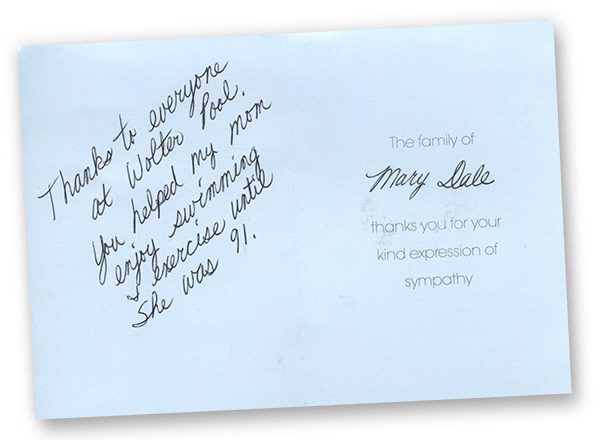 Thanks to everyone
at Wolter Pool.
You helped my mom
enjoy swimming
& exercise until
She was 91.
The family of
Mary Dale
thanks you for your
kind expression of
sympathy